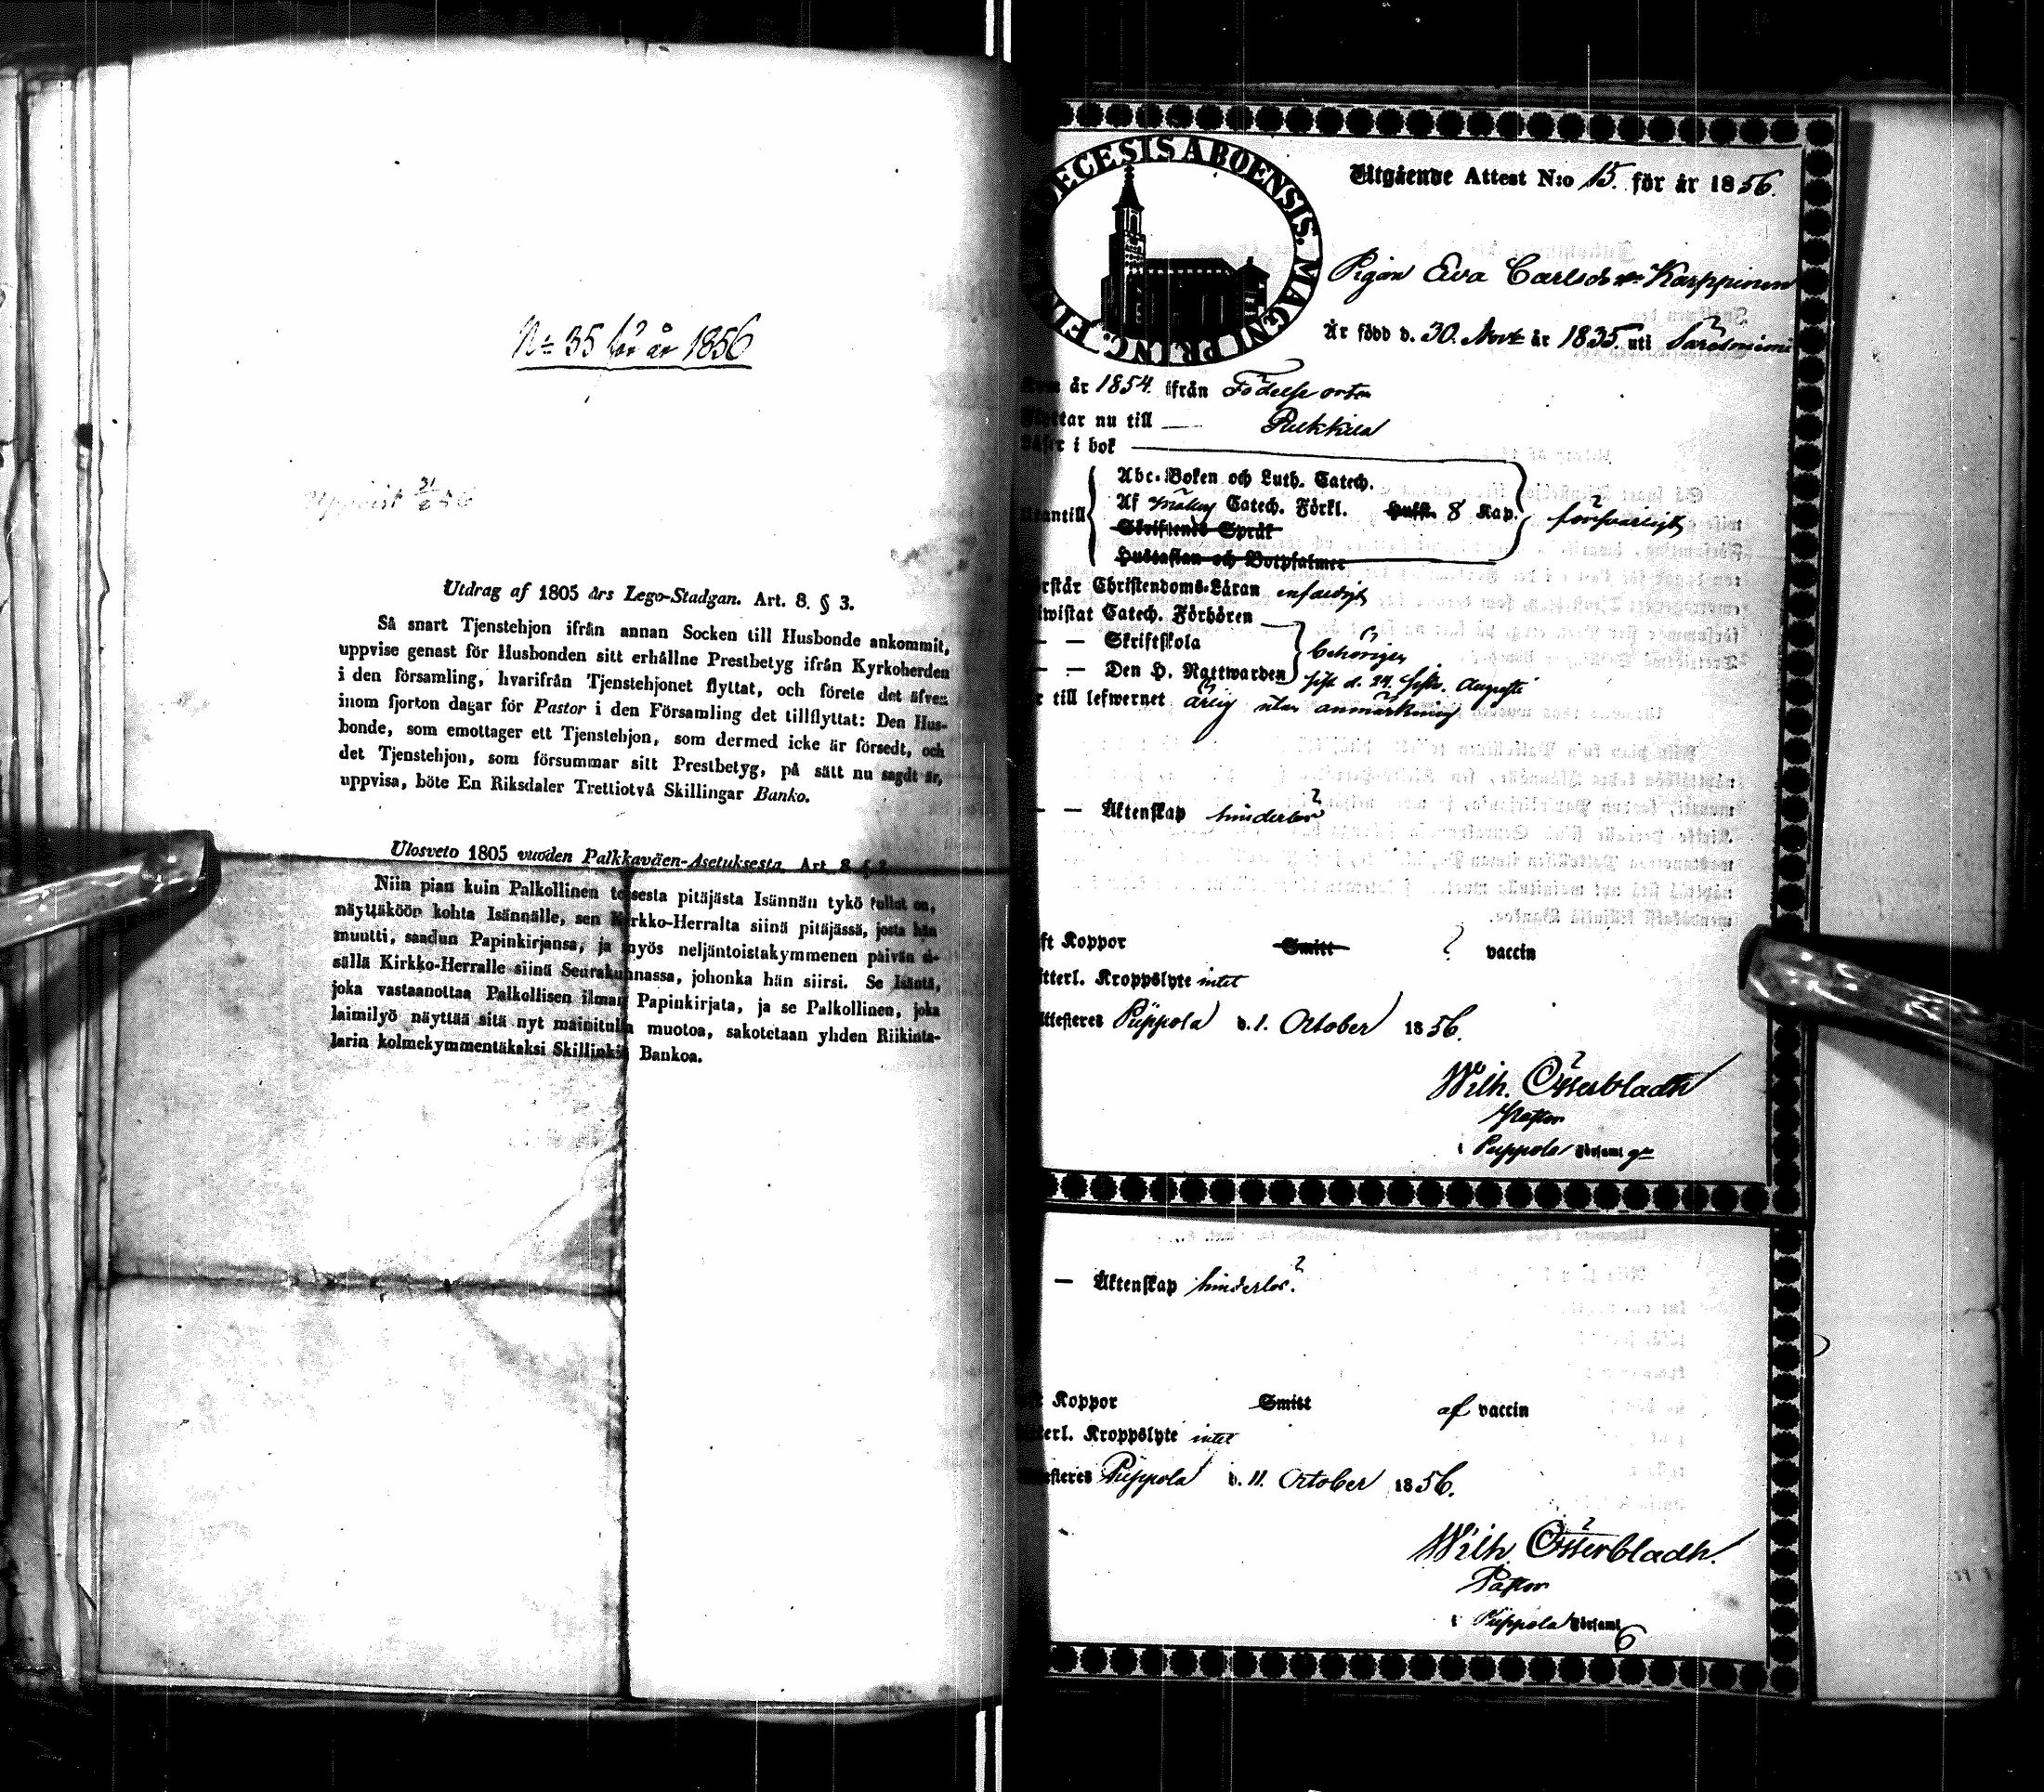 No 35 för år 1856
Uppvist 31/8 56
Utdrag af 1805 års Lego-Stadgan. Art. 8. § 3.
Så snart Tjenstehjon ifrån annan Socken till Husbonde ankommit,
uppvise genast för Husbonden sitt erhållne Prestbetyg ifrån Kyrkoherden
i den församling, hvarifrån Tjenstehjonet flyttat, och förete det äfven
inom fjorton dagar för Pastor i den Församling det tillflyttat: Den Hus-
bonde, som emottager ett Tjenstehjon, som dermed icke är försedt, och
det Tjenstehjon, som försummar sitt Prestbetyg, på sätt nu sagdt är,
uppvisa, böte En Riksdaler Trettiotvå Skillingar Banko.
Ulosveto 1805 vuoden Palkkaväen-Asetuksesta. Art. 8. § 3.
Niin pian kuin Palkollinen toisesta pitäjästa Isännän tykö tullut on,
näyttäköön kohta Isännälle, sen Kirkko-Herralta siinä pitäjässä, josta hän
muutti, saadun Papinkirjansa, ja myös neljäntoistakymmenen päivän si-
sällä Kirkko-Herralle siinä Seurakunnassa, johonka hän siirsi. Se Isäntä,
joka vastaanottaa Palkollisen ilman Papinkirjata, ja se Palkollinen, joka
laimilyö näyttää sitä nyt mainitulla muotoa, sakotetaan yhden Riikinta-
larin kolmekymmentäkaksi Skillinkiä Bankoa.
DECESIS ABOENSIS. MAGNI PRINC. FIN
Utgående Attest N:o 15. för år 1856.
Pigan Eva Carlsdr Karppinen
Är född d. 30. Novbr år 1835. uti Säresniemi
Kom år 1854. ifrån Födelse orten
Flyttar nu till — Pulkkila
Läser i bok
Abc-Boken och Luth. Catech.
Utantill Af Möllers Catech. Förkl. Huffd. 8 Kap. försvarligt
Skriftenes Språk
Hustaflan och Botpsalmer
rstår Christendoms-Läran enfaldigt
iwistat Catech. Förhören
— — Skriftskola behörigen
— — Den H. Nattwarden sist d. 24. sistl. Augusti
r till lefwernet ärlig utan anmärkning
— — Äktenskap hinderlös
ft Koppor Smitt vaccin
tterl. Kroppslyte intet
Attesteres Piippola d. 1. October 1856.
Wilh. Österbladh
Pastor
i Piippola Församl gn
— Äktenskap hinderlös.
Koppor Smitt af vaccin
tterl. Kroppslyte intet
esteres Piippola d. 11. October 1856.
Wilh. Österbladh.
Pastor
i Piippola Församl
6